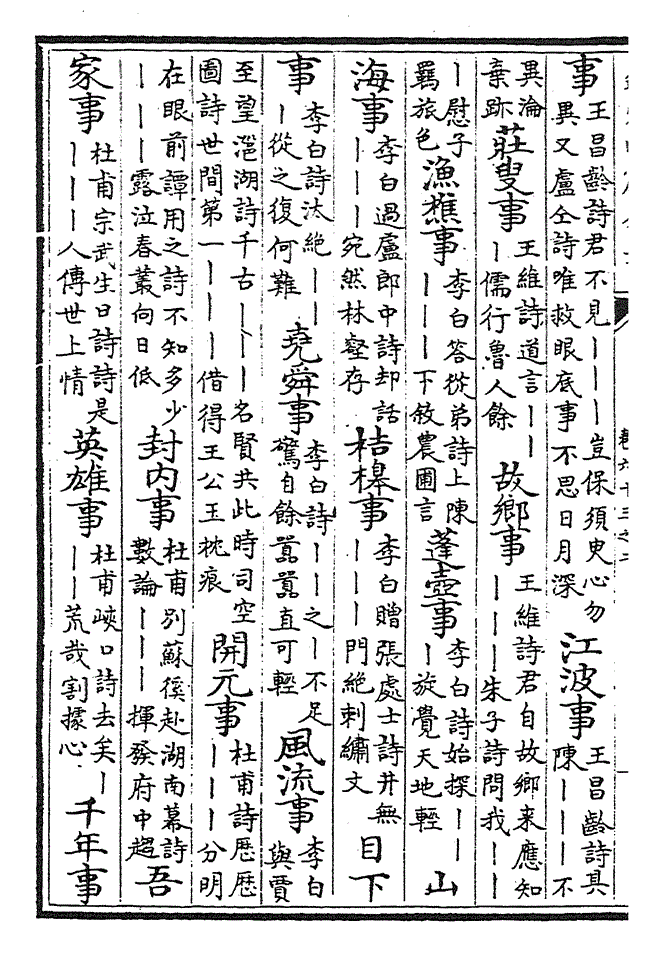 事王昌齡詩君不見丨丨丨豈保須臾心勿異又盧仝詩唯救眼底事不思日月深江波事王昌齡詩具陳丨丨丨不
異淪棄跡莊叟事王維詩道言丨丨丨儒行魯人餘故鄉事王維詩君自故鄉來應知丨丨丨朱子詩問我丨丨
丨慰子羇旅色漁樵事李白答從弟詩上陳丨丨丨下敘農圃言蓬壺事李白詩始探丨丨丨旋覺天地輕山
海事李白過盧郎中詩却話丨丨丨宛然林壑存桔槔事李白贈張處士詩井無丨丨丨門絕刺繡文目下
事李白詩汰絕丨丨丨從之復何難堯舜事李白詩丨丨之丨不足驚自餘嚻嚻直可輕風流事李白與賈
至望㴩湖詩千古丨丨丨名賢共此時司空圖詩世間第一丨丨丨借得王公玉枕痕開元事杜甫詩歷歷丨丨丨分明
在眼前譚用之詩不知多少丨丨丨露泣春叢向日低封內事杜甫別蘇徯赴湖南幕詩數論丨丨丨揮發府中趨吾
家事杜甫宗武生日詩詩是丨丨丨人傳世上情英雄事杜甫峽口詩去矣丨丨丨荒哉割據心千年事